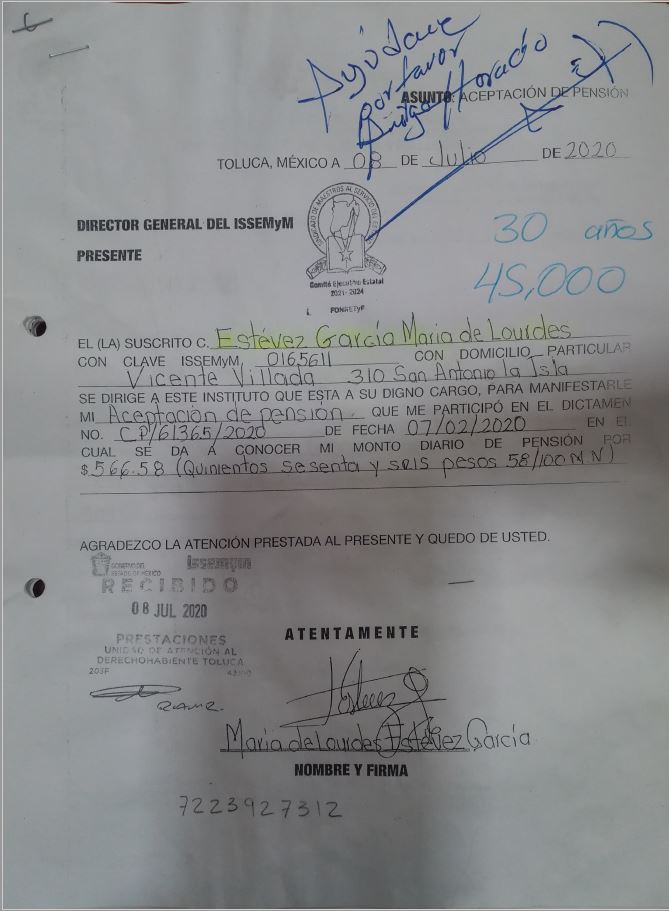 6
Ayúdame
por favor
Amigo Horacio
ASUNTO: ACEPTACIÓN DE PENSIÓN
TOLUCA, MÉXICO A 08 DE Julio DE 2020
DIRECTOR GENERAL DEL ISSEMyM
PRESENTE
SINDICATO DE MAESTROS AL SERVICIO DEL ESTADO
Comité Ejecutivo Estatal
2021-2024
30 años
45,000
EL (LA) SUSCRITO C. Estévez García Maria de Lourdes
CON CLAVE ISSEMyM, 0165611 CON DOMICILIO PARTICULAR
Vicente Villada 310 San Antonio la Isla
SE DIRIGE A ESTE INSTITUTO QUE ESTA A SU DIGNO CARGO, PARA MANIFESTARLE
MI Aceptación de pensión. QUE ME PARTICIPÓ EN EL DICTAMEN
NO. CP/61365/2020 DE FECHA 07/02/2020 EN EL
CUAL SE DA A CONOCER MI MONTO DIARIO DE PENSIÓN POR
$566.58 (Quinientos sesenta y seis pesos 58/100 M N)
AGRADEZCO LA ATENCIÓN PRESTADA AL PRESENTE Y QUEDO DE USTED.
GOBIERNO DEL
ESTADO DE MÉXICO
issemym
RECIBIDO
08 JUL 2020
PRESTACIONES
UNIDAD DE ATENCIÓN AL
DERECHOHABIENTE TOLUCA
203F
ATENTAMENTE
Estevez G
Maria de Lourdes Estévez García
NOMBRE Y FIRMA
7223927312